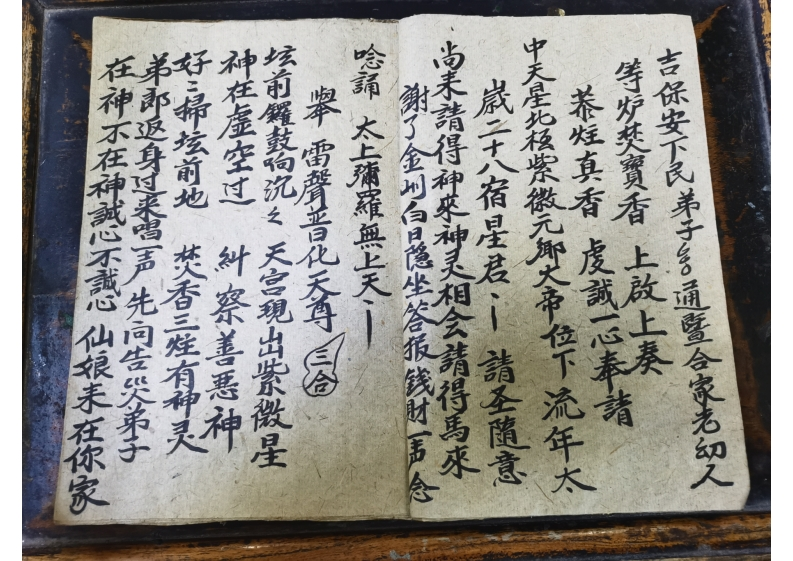 吉保安下民弟子 通暨合家老幼人
等炉焚寶香 上啟上奏
恭炷真香 虔誠一心奉請
中天星北极紫微元卿大帝位下 流年太
歲二十八宿星君 請圣隨意
尚来請得神來神灵相会請得馬來
謝了金 白日隐坐答报錢財一声念
唸誦 太上彌羅無上天
舉 雷聲普化天尊 三合
坛前鑼鼓响沉之 天宫現出紫微星
神在虚空过 糾察善恶神
好〻掃坛前地 焚香三炷有神灵
弟郎返身过来唱一声 先向告災弟子
在神不在神誠心不誠心 仙娘来在你家